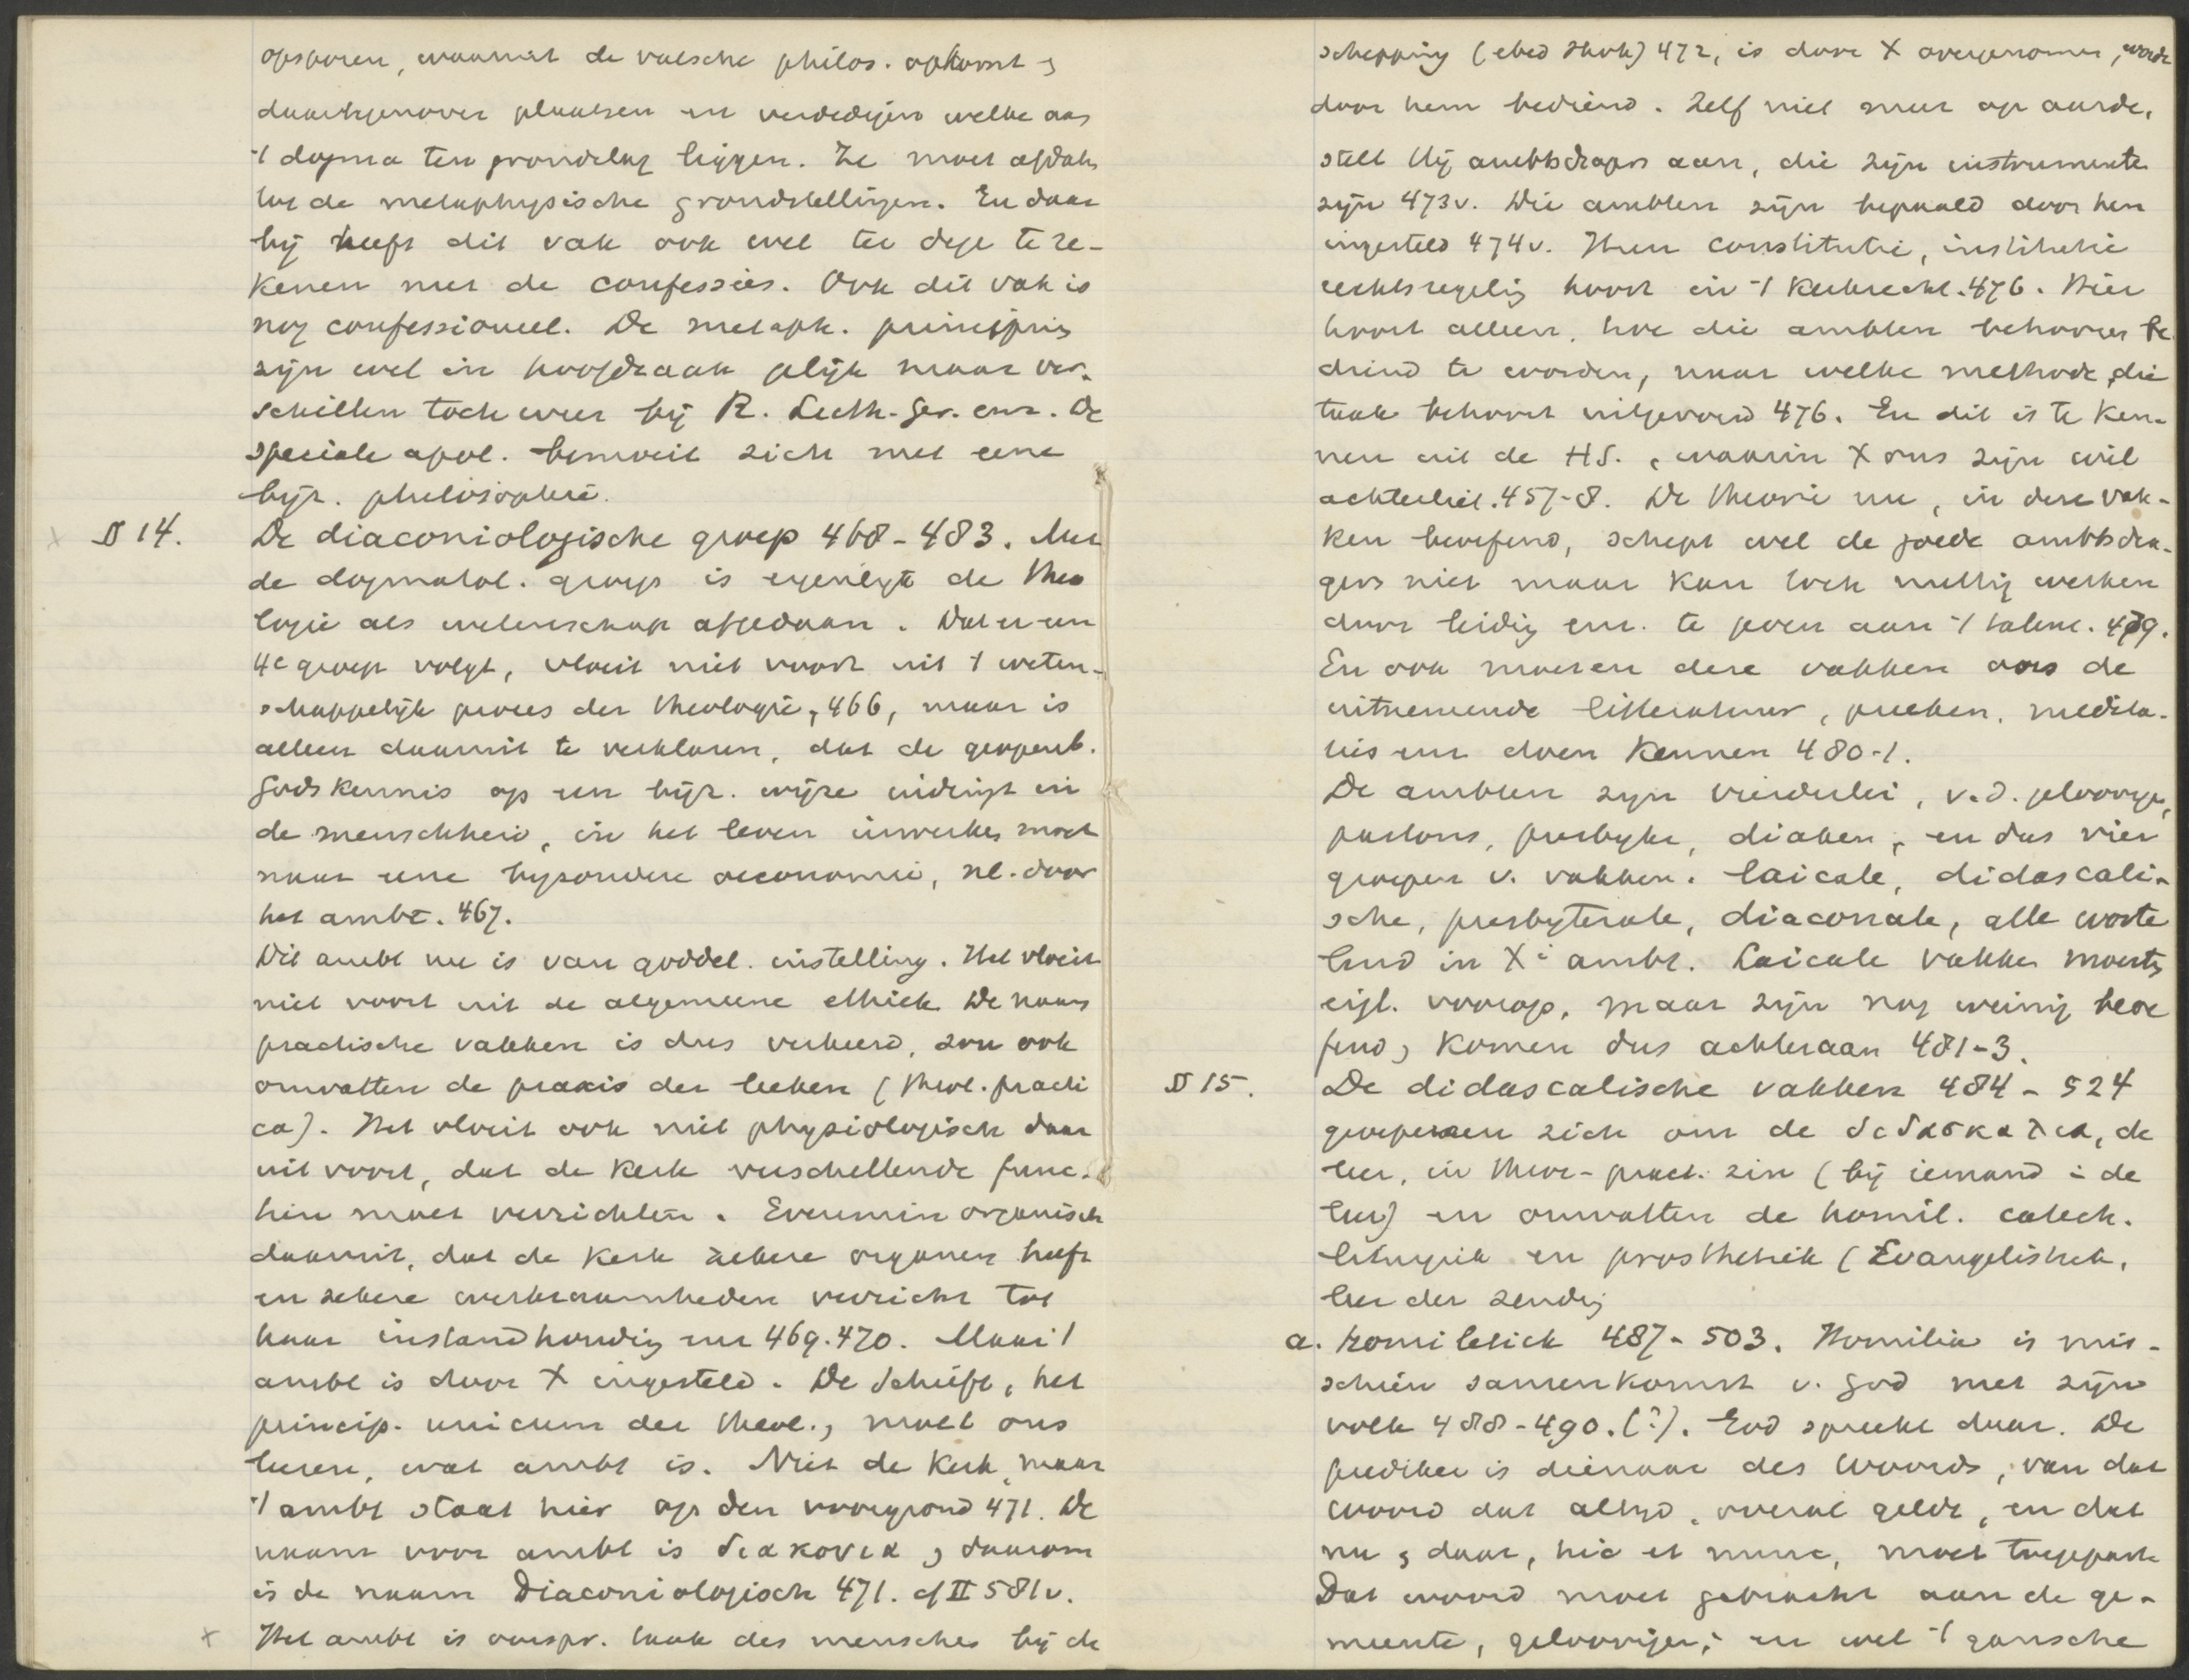 opsporen, waaruit de valsche philos. opkomt &
daartegenover plaatsen en verdedigen welke aan
't dogma ten grondslag liggen. Ze moet afdalen
tot de metaphysische grondstellingen. En daar
bij heeft dit vak ook wel ter dege te re-
kenen met de confessies. Ook dit vak is
nog confessioneel. De metaph. principia
zijn wel in hoofdzaak gelijk maar ver-
schillen toch weer bij R. Luth. Ger. enz. De
speciale apol. bemoeit zich met eene
bijz. philosophie.
§ 14. De diaconiologische groep 468-483. Met
de dogmatol. groep is eigenlijk de theo
logie als wetenschap afgedaan. Dat er een
4e groep volgt, vloeit niet voort uit 't weten-
schappelijk proces der theologie, 466, maar is
alleen daaruit te verklaren, dat de geopenb.
Godskennis op een bijz. wijze indringt in
de menschheid, in het leven inwerken moet
naar eene bijzondere oeconomie, nl. door
het ambt. 467.
Dit ambt nu is van goddel. instelling. Het vloeit
niet voort uit de algemeene ethiek. De naam
practische vakken is dus verkeerd, zou ook
omvatten de praxis der leeken (theol. practi
ca). Het vloeit ook niet physiologisch daar
uit voort, dat de kerk verschillende func-
tien moet verrichten. Evenmin organisch
daaruit, dat de kerk zekere organen heeft
en zekere werkzaamheden verricht tot
haar instandhouding enz 469.470. Maar 't
ambt is door X ingesteld. De Schrift, het
princip. unicum der theol., moet ons
leeren, wat ambt is. Niet de kerk, maar
't ambt staat hier op den voorgrond 471. De
naam voor ambt is διακονια, daarom
is de naam Diaconiologisch 471. cf II 581v.
x Het ambt is oorspr. taak des menschen bij de
schepping (ebed Jhvh) 472, is door X overgenomen, wordt
door hem bediend. Zelf niet meer op aarde,
stelt Hij ambtsdragers aan, die zijn instrumenten
zijn 473v. Die ambten zijn bepaald door hem
ingesteld 474v. Hun constitutie, institutie
rechtsregeling hoort in 't kerkrecht. 476. Hier
hoort alleen, hoe die ambten behooren be
diend te worden, naar welke methode die
taak behoort uitgevoerd 476. En dit is te ken-
nen uit de HS., waarin X ons zijn wil
achterliet. 457-8. De theorie nu, in deze vak-
ken beoefend, schept wel de goede ambtsdra-
gers niet maar kan toch nuttig werken
door leiding enz. te geven aan 't talent. 479.
En ook moeten deze vakken ons de
uitnemende litteratuur, preeken, medita-
ties enz doen kennen 480-1.
De ambten zijn vierderlei, v.d. geloovige,
pastors, presbyter, diaken, en dus vier
groepen v. vakken. laicale, didascali-
sche, presbyterale, diaconale, alle worte
lend in X's ambt. Laicale vakken moesten
eigl. voorop, maar zijn nog weinig beoe
fend, komen dus achteraan 481-3.
§ 15. De didascalische vakken 484-524
groepeeren zich om de διδασκαλια, de
leer, in theor-pract. zin (bij iemand i de
leer) en omvatten de homil. catech.
liturgiek en prosthetiek (Evangelistiek,
leer der zending
a. homiletiek 487-503. Homilia is mis-
schien samenkomst v. God met zijn
volk 488-490.(?). God spreekt daar. De
prediker is dienaar des Woords, van dat
woord dat altijd, overal geldt, en dat
nu & daar, hic et nunc, moet toegepast
Dat woord moet gebracht aan de ge-
meente, geloovigen, en wel 't gansche